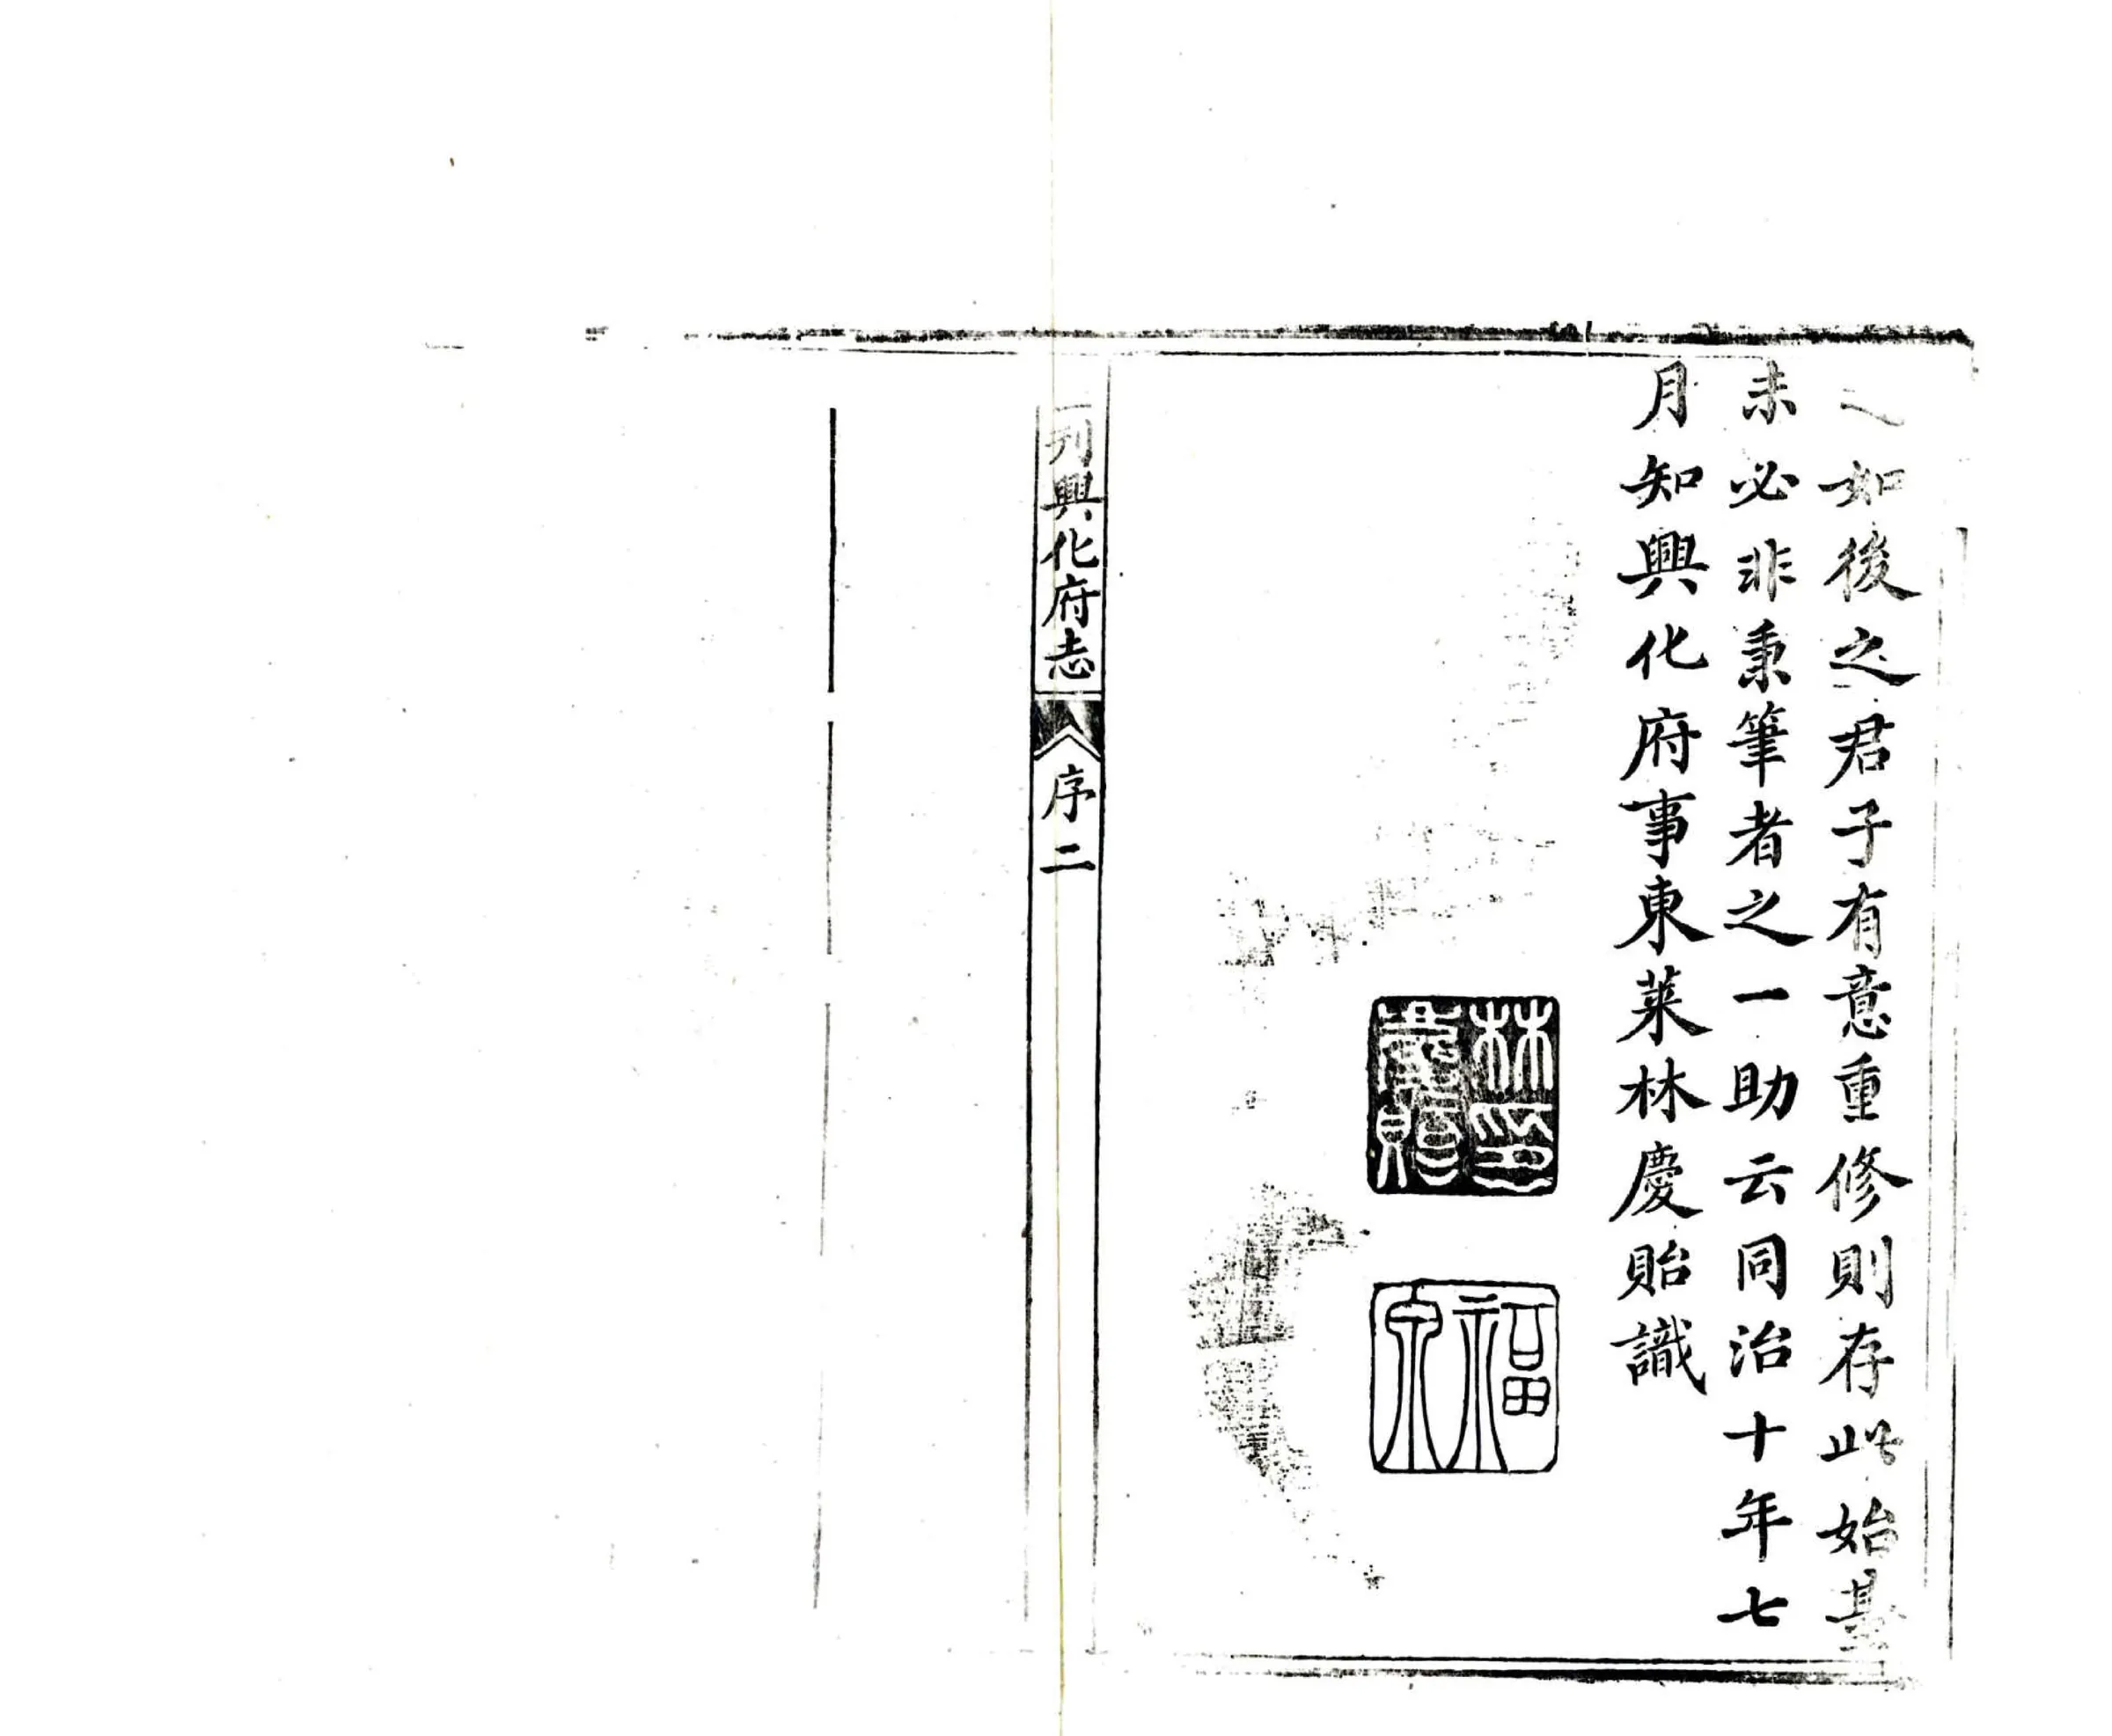 之如後之君子有意重修則存此始基
未必非秉筆者之一助云同治十年七
月知興化府事東萊林慶貽識
林印
慶貽
福
泉
刊興化府志
序二